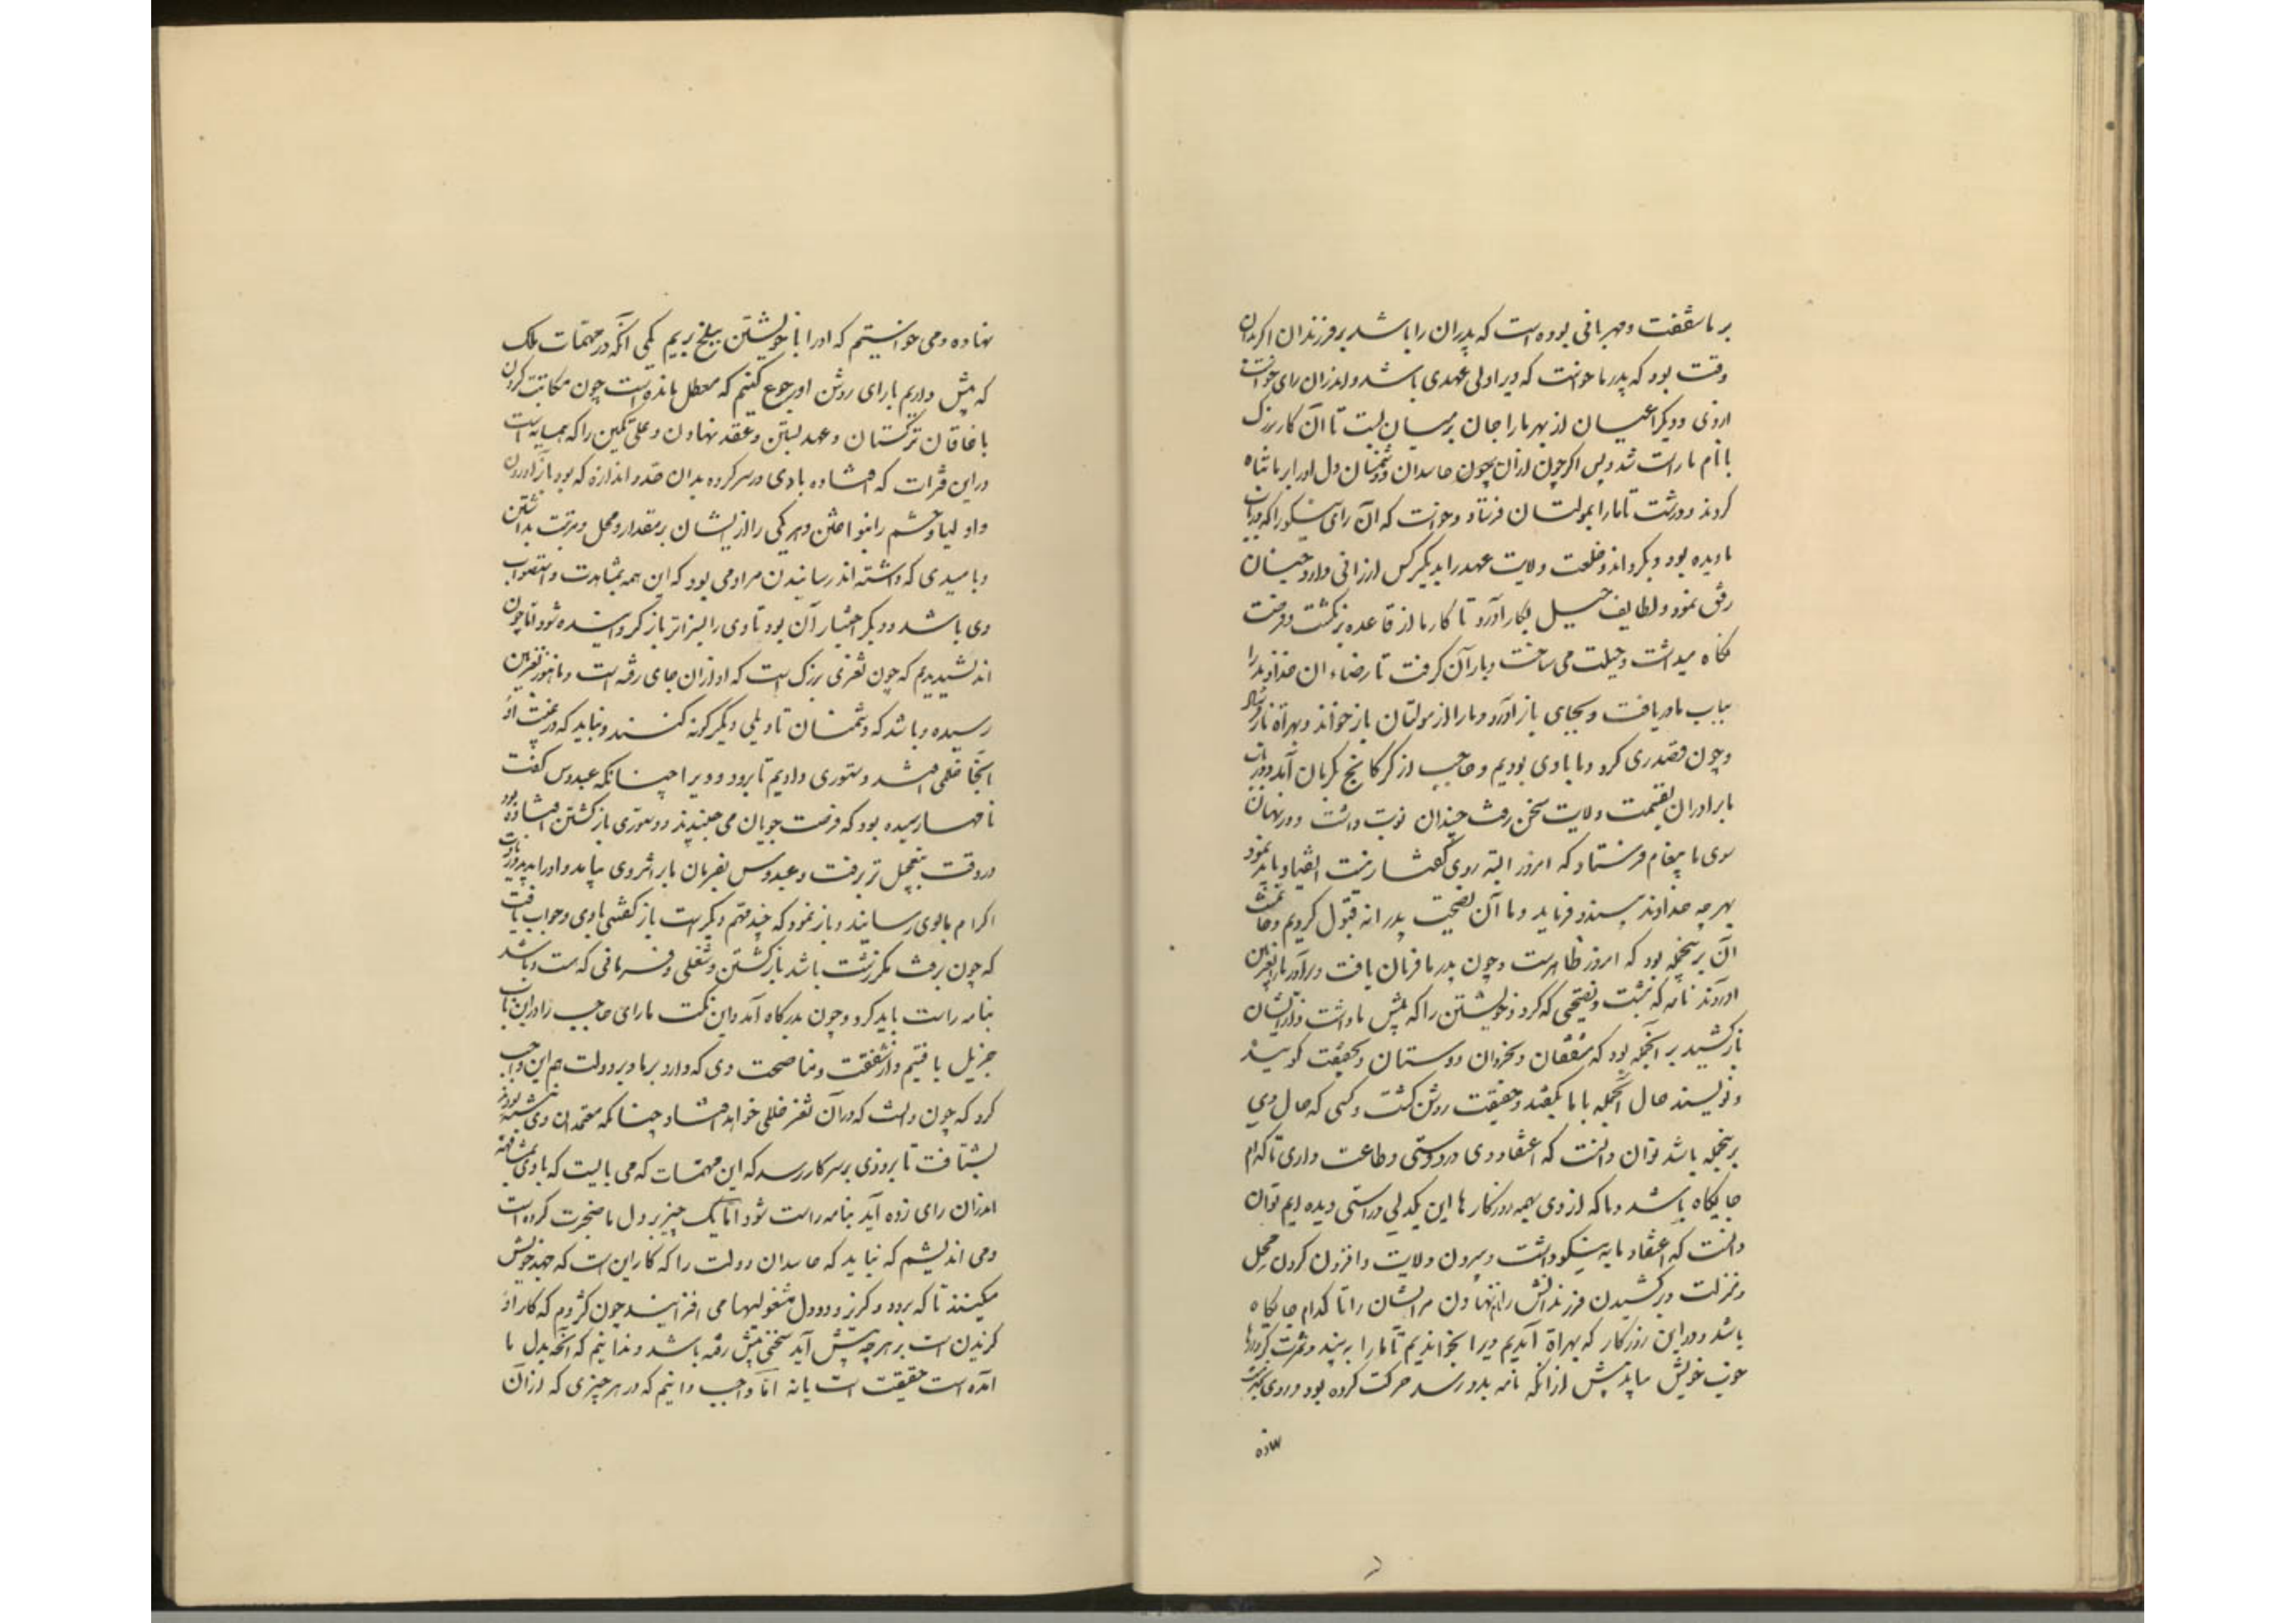 بر ما شفقت و مهربانی بوده است که پدران را باشد بر فرزندان اگر بدان
وقت بود که پدر ما خواست که ویرا ولی عهدی باشد و اندران رای خواست
ازوی و دیگر اعیان از بهر ما را جان بر میان بست تا آن کار بزرک
با نام ما راست شد و پس اکر چون ازان چون حاسدان و دشمنان دل او را بر ما تباه
کردند و درشت تا ما را بمولتان فرستاد و خواست که آن رای نیکو را که در باب
ما دیده بود بگرداند و خلعت ولایت عهد را بدیگر کس ارزانی دارد چنان
رفق نمود و لطایف حیل بکار آورد تا کار ما از قاعده برنکشت و فرصت
نکاه میداشت و حیلت می ساخت و یاران گرفت تا رضاء آن خداوند را
بباب ما دریافت و بجای باز آورد و ما را از مولتان باز خواند و بهراة باز فرستاد
و چون قصد ری کرد و ما با وی بودیم و حاجب از کرکانج بکرکان آمد و در باب
ما برادران بقسمت ولایت سخن رفت چندان نوبت داشت و در نهان
سوی ما پیغام فرستاد که امروز البته روی گفتار نیست انقیاد باید نمود
بهر چه خداوند بیند و فرماید و ما آن نصیحت پدرانه قبول کردیم و خاتمت
آن برینجمله بود که امروز ظاهر است و چون پدر ما فرمان یافت و برادر ما را بغزنین
آوردند نامه که نبشت و نصیحتی که کرد و خویشتن را که پیش ما داشت و از ایشان
باز کشید بر آنجمله بود که مشفقان و بخردان و دوستان بحقیقت گویند
و نویسند حال آنجمله با ما بگفتند و حقیقت روشن گشت و کسی که حال وی
برینجمله باشد توان دانست که اعتقاد وی در دوستی و طاعت داری تا کدام
جایگاه باشد و ما که از وی بهمه روزگارها این یکدلی و راستی دیده ایم توان
دانست که اعتقاد ما به نیکوداشت و سپردن ولایت و افزون کردن محل
و منزلت و برکشیدن فرزندانش را و نام نهادن مر ایشان را تا کدام جایگاه
باشد و در این روزگار که بهراة آمدیم ویرا بخواندیم تا ما را به بیند و ثمرت کردارها
خوب خویش بیابد پیش از انکه نامه بدو رسد حرکت کرده بود و روی بخدمت
نهاده
نهاده و می خواستیم که او را با خویشتن ببلخ بریم یکی آنکه در مهمات ملک
که پیش داریم با رای روشن او رجوع کنیم که معطل مانده است چون مکاتبت کردن
با خاقان ترکستان و عهد بستن و عقد نهادن و علی تکین را که همسایه است
در این فترات که افتاده بادی در سر کرده بدان حد و اندازه که بود باز آوردن
و اولیا و حشم را بنواختن و هر یکی را از ایشان بر مقدار و محل و مرتبت بداشتن
و بامیدی که داشته اند رسانیدن مراد می بود که این همه بمشاهدت و استصواب
وی باشد و دیگر اختیار آن بود تا وی را بسزاتر باز گردانیده شود اما چون
اندیشیدیم که چون ثغری بزرک است که او ازان جای رفته است و ما هنوز بغزنین
رسیده و باشد که دشمنان تاویلی دیگرگونه کنند و نباید که در غیبت او
آنجا خللی افتد دستوری دادیم تا برود و ویرا چنانکه عبدوس گفت
نامها رسیده بود که فرصت جویان می جنبیدند و دستوری بازگشتن افتاده بود
در وقت بتعجیل تر برفت و عبدوس بفرمان ما بر اثر وی بیامد و او را بدید زیادت
اکرام ما بوی رسانید و باز نمود که چند مهم دیگر است باز گفتنی با وی و جواب یافت
که چون برفت مگر زشت باشد بازگشتن و شغلی و فرمانی که هست و باشد
بنامه راست باید کرد و چون بدرگاه آمد و این نکت ما رای حاجب را در این باب
جزیل یافتیم و از شفقت و مناصحت وی که دارد بر ما و بر دولت هم این واجب
کرد که چون دانست که در آن ثغر خللی خواهد افتاد چنانکه معتمدان وی نبشته بودند
بشتافت تا بزودی بر سر کار رسد که این مهمات که می بایست که با وی بمشافهه
اندران رای زده آید بنامه راست شود اما یک چیز بر دل ما ضجرت کرده است
و می اندیشم که نباید که حاسدان دولت را که کار این است که جهد خویش
میکنند تا که برود و گر نرود دل مشغولیها می افزایند چون کژدم که کار او
گزیدن است بر هر چه پیش آید سخنی پیش رفته باشد و ندانیم که آنچه بدل ما
آمده است حقیقت است یا نه اما واجب دانیم که در هر چیزی که ازان